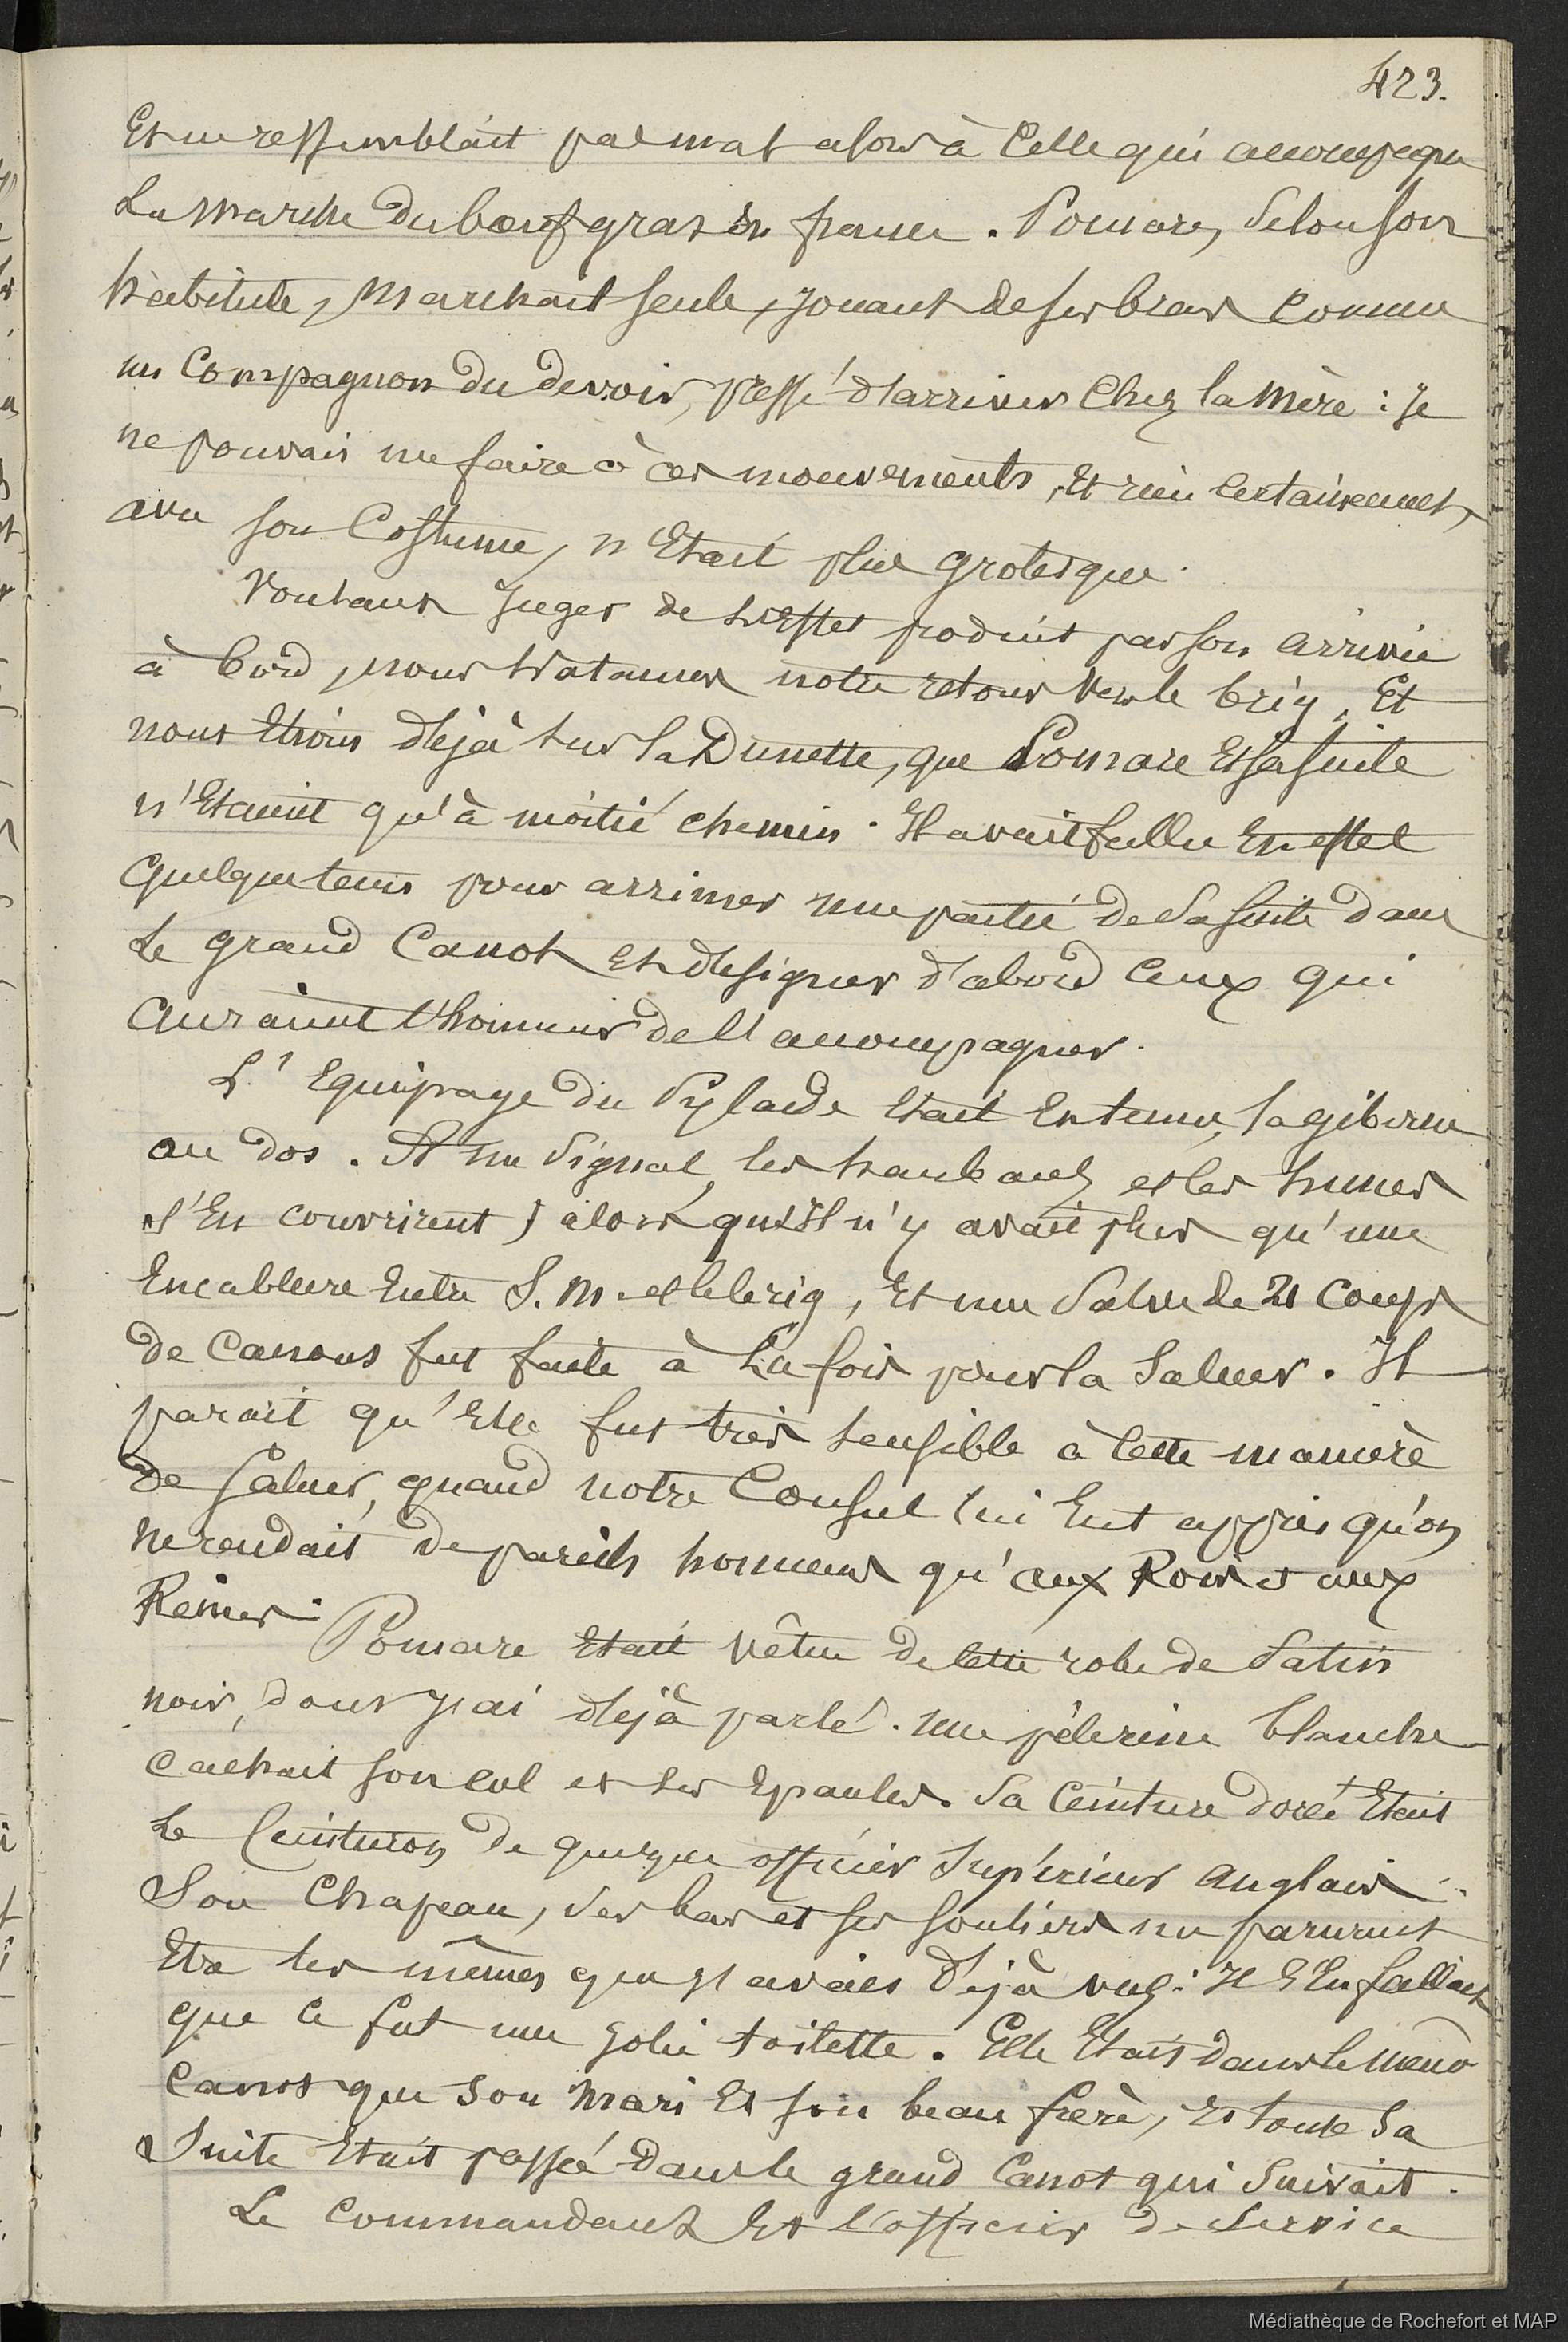 423.
Et ne ressemblait pas mal alors à Celle qui accompagne
La marche du bœuf gras en france. Pomare, Selon son
habitude, marchait seule, jouant de ses bras comme
un Compagnon du devoir, pressé d'arriver Chez la Mère : je
ne pouvais me faire à ces mouvements, Et rien Certainement,
avec son Costume, n'Etait plus grotesque.
Voulant Juger de l'Effet produit par son arrivée
à bord, nous hatames notre retour vers le brig, Et
nous Etions déjà sur la Dunette, que Pomare Et sa suite
n'Etaient qu'à moitié chemin. Il avait fallu En effet
quelque tems pour arrimer une partie de Sa suite dans
Le grand Canot Et désigner d'abord Ceux qui
auraient l'honneur de l'accompagner.
L'Equipage du Pylade Etait En tenue, la giberne
au dos. A un Signal, les haubans et les hunes
s'En couvrirent, alors qu'il n'y avait plus qu'une
Encablure Entre S. M. et le brig, Et une Salve de 21 Coups
de Canons fut faite à la fois pour la Saluer. Il
parait qu'Elle fut très sensible à Cette manière
de saluer, quand notre Consul lui Eut appris qu'on
ne rendait de pareils honneurs qu'aux Rois et aux
Reines.
Pomare Etait vêtue de Cette robe de Satin
noir, dont j'ai déjà parlé. une pélerine blanche
cachait son col et ses Epaules. Sa Ceinture dorée Etait
Le Ceinturon de quelque officier Supérieur anglais.
Son Chapeau, ses bas et ses souliers me parurent
Etre les mêmes que j'avais déjà vus. Il s'En fallait
que ce fut une jolie toilette. Elle Etait dans le même
Canot que son Mari Et son beau frère, Et toute Sa
Suite Etait passée dans le grand Canot qui Suivait.
Le Commandant Et l'officier de Service
Médiathèque de Rochefort et MAP